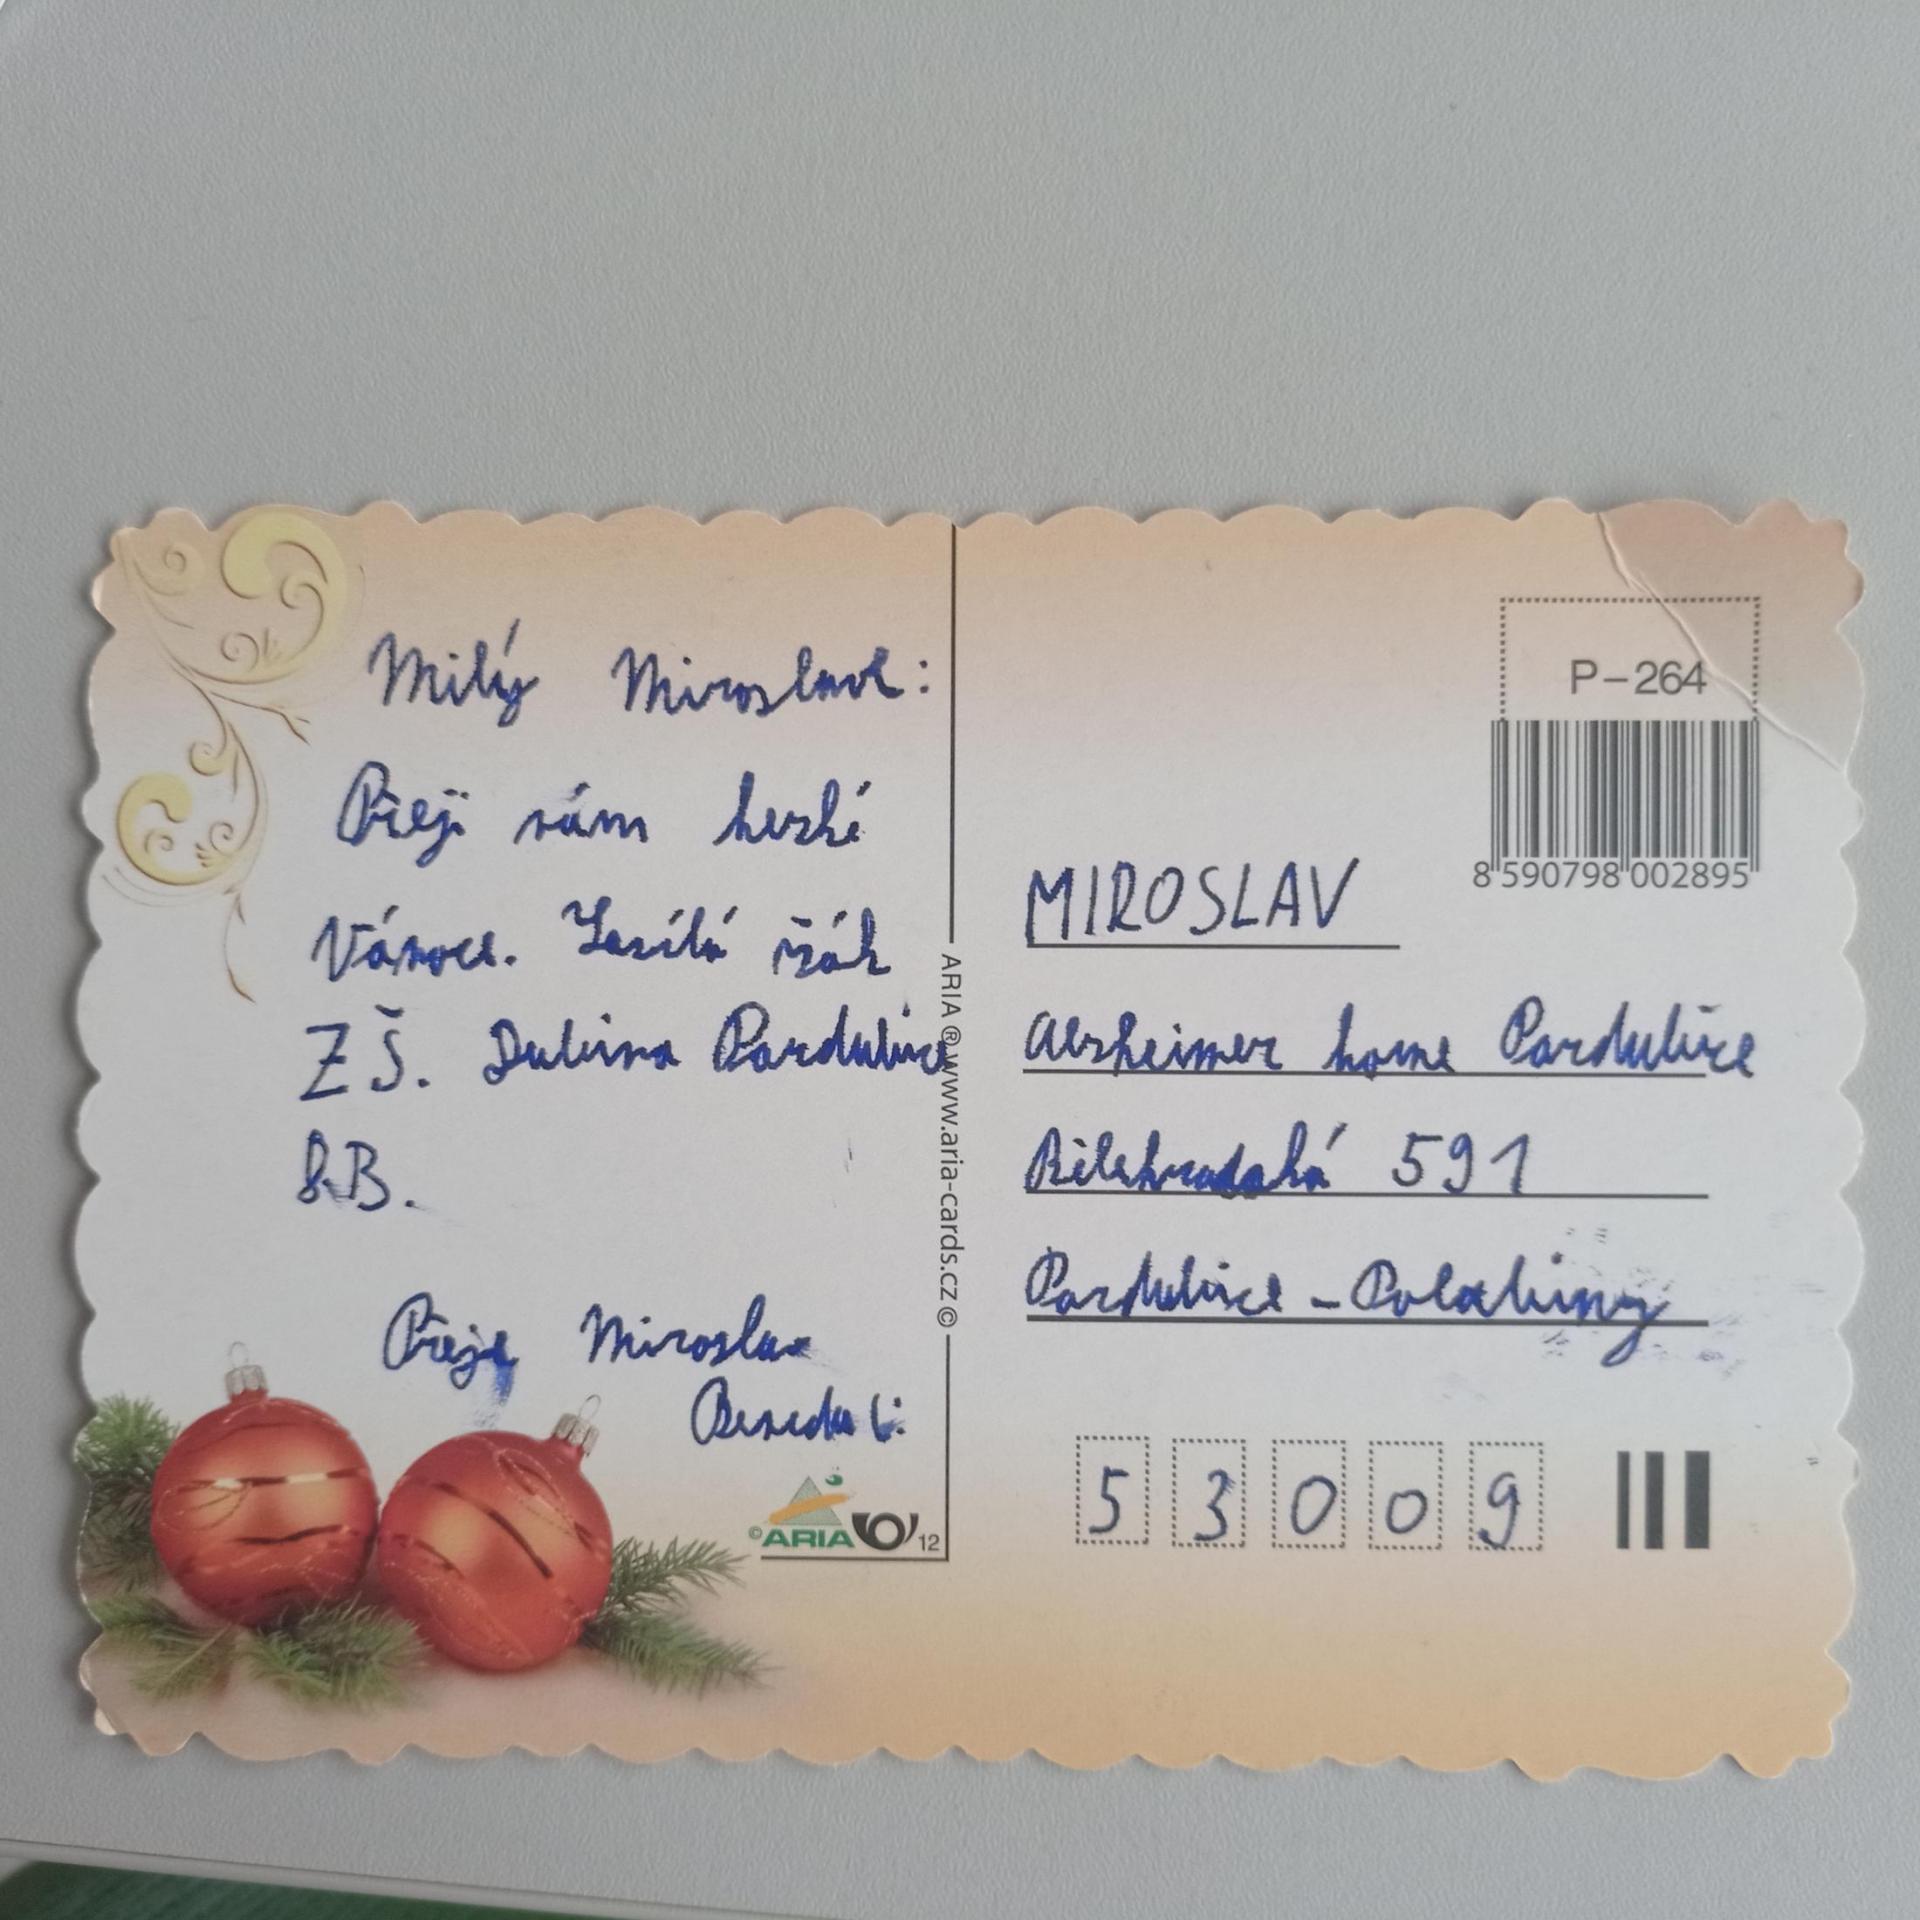 Milý Miroslave:
Přeji vám hezké
Vánoce. Zasílá žák
ZŠ. Dubina Pardubice
8.B.
Přeje Miroslav
ARIA ® www.aria-cards.cz ©
© ARIA 12
P-264
8 590798 002895
MIROSLAV
Alzheimer home Pardubice
Bělehradská 591
Pardubice - Polabiny
5 3 0 0 9